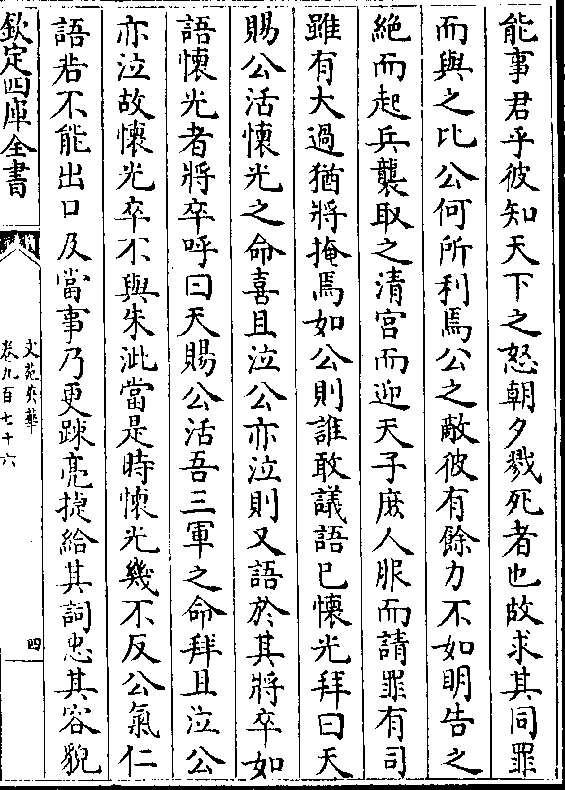 能事君乎彼知天下之怒朝夕戮死者也故求其同罪
而與之比公何所利焉公之敵彼有餘力不如明告之
絶而起兵襲取之清宫而迎天子庶人服而請罪有司
雖有大過猶將掩焉如公則誰敢議語已懐光拜曰天
賜公活懐光之命喜且泣公亦泣則又語於其將卒如
語懐光者將卒呼曰天賜公活吾三軍之命拜且泣公
亦泣故懐光卒不與朱泚當是時懐光幾不反公氣仁
語若不能出口及當事乃更踈亮捷給其詞忠其容貌
欽定四庫全書
文苑英華
卷九百七十六
四